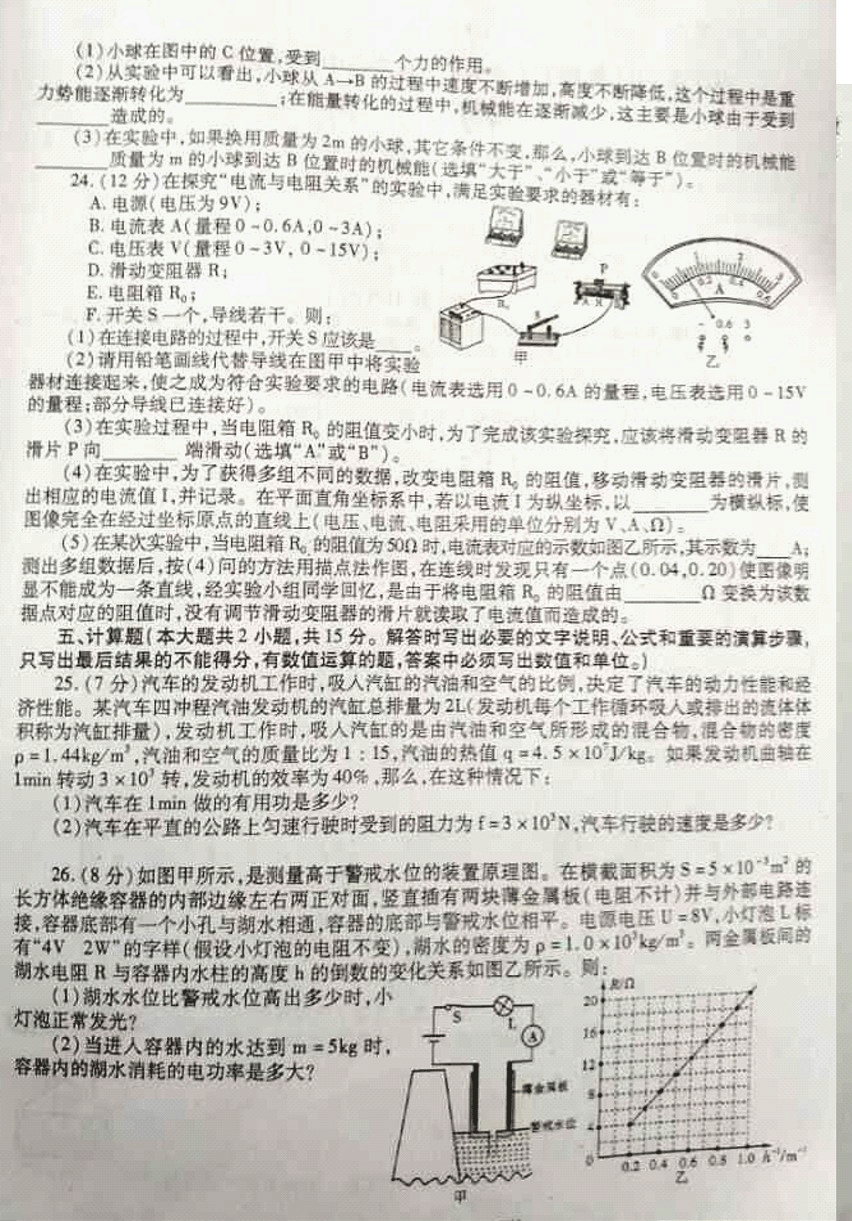 (1)小球在图中的C位置,受到________个力的作用。
(2)从实验中可以看出,小球从A→B的过程中速度不断增加,高度不断降低,这个过程中是重
力势能逐渐转化为________;在能量转化的过程中,机械能在逐渐减少,这主要是小球由于受到
________造成的。
(3)在实验中,如果换用质量为2m的小球,其它条件不变,那么,小球到达B位置时的机械能
________质量为m的小球到达B位置时的机械能(选填“大于”、“小于”或“等于”)。
24.(12分)在探究“电流与电阻关系”的实验中,满足实验要求的器材有:
A.电源(电压为9V);
B.电流表A(量程0~0.6A,0~3A);
C.电压表V(量程0~3V,0~15V);
D.滑动变阻器R;
E.电阻箱R₀;
F.开关S一个,导线若干。则:
(1)在连接电路的过程中,开关S应该是____。
(2)请用铅笔画线代替导线在图甲中将实验
器材连接起来,使之成为符合实验要求的电路(电流表选用0~0.6A的量程,电压表选用0~15V
的量程;部分导线已连接好)。
P
R₀
S
甲
0 1 2 3
0 0.2 0.4 0.6
A
- 0.6 3
乙
(3)在实验过程中,当电阻箱R₀的阻值变小时,为了完成该实验探究,应该将滑动变阻器R的
滑片P向________端滑动(选填“A”或“B”)。
(4)在实验中,为了获得多组不同的数据,改变电阻箱R₀的阻值,移动滑动变阻器的滑片,测
出相应的电流值I,并记录。在平面直角坐标系中,若以电流I为纵坐标,以________为横纵标,使
图像完全在经过坐标原点的直线上(电压、电流、电阻采用的单位分别为V、A、Ω)。
(5)在某次实验中,当电阻箱R₀的阻值为50Ω时,电流表对应的示数如图乙所示,其示数为____A;
测出多组数据后,按(4)问的方法用描点法作图,在连线时发现只有一个点(0.04,0.20)使图像明
显不能成为一条直线,经实验小组同学回忆,是由于将电阻箱R₀的阻值由________Ω变换为该数
据点对应的阻值时,没有调节滑动变阻器的滑片就读取了电流值而造成的。
五、计算题(本大题共2小题,共15分。解答时写出必要的文字说明、公式和重要的演算步骤,
只写出最后结果的不能得分,有数值运算的题,答案中必须写出数值和单位。)
25.(7分)汽车的发动机工作时,吸入汽缸的汽油和空气的比例,决定了汽车的动力性能和经
济性能。某汽车四冲程汽油发动机的汽缸总排量为2L(发动机每个工作循环吸入或排出的流体体
积称为汽缸排量),发动机工作时,吸入汽缸的是由汽油和空气所形成的混合物,混合物的密度
ρ=1.44kg/m³,汽油和空气的质量比为1:15,汽油的热值q=4.5×10⁷J/kg。如果发动机曲轴在
1min转动3×10³转,发动机的效率为40%,那么,在这种情况下:
(1)汽车在1min做的有用功是多少?
(2)汽车在平直的公路上匀速行驶时受到的阻力为f=3×10³N,汽车行驶的速度是多少?
26.(8分)如图甲所示,是测量高于警戒水位的装置原理图。在横截面积为S=5×10⁻³m²的
长方体绝缘容器的内部边缘左右两正对面,竖直插有两块薄金属板(电阻不计)并与外部电路连
接,容器底部有一个小孔与湖水相通,容器的底部与警戒水位相平。电源电压U=8V,小灯泡L标
有“4V 2W”的字样(假设小灯泡的电阻不变),湖水的密度为ρ=1.0×10³kg/m³。两金属板间的
湖水电阻R与容器内水柱的高度h的倒数的变化关系如图乙所示。则:
(1)湖水水位比警戒水位高出多少时,小
灯泡正常发光?
(2)当进入容器内的水达到m=5kg时,
容器内的湖水消耗的电功率是多大?
S
L
A
薄金属板
警戒水位
甲
R/Ω
20
16
12
8
4
0 0.2 0.4 0.6 0.8 1.0 h⁻¹/m⁻¹
乙